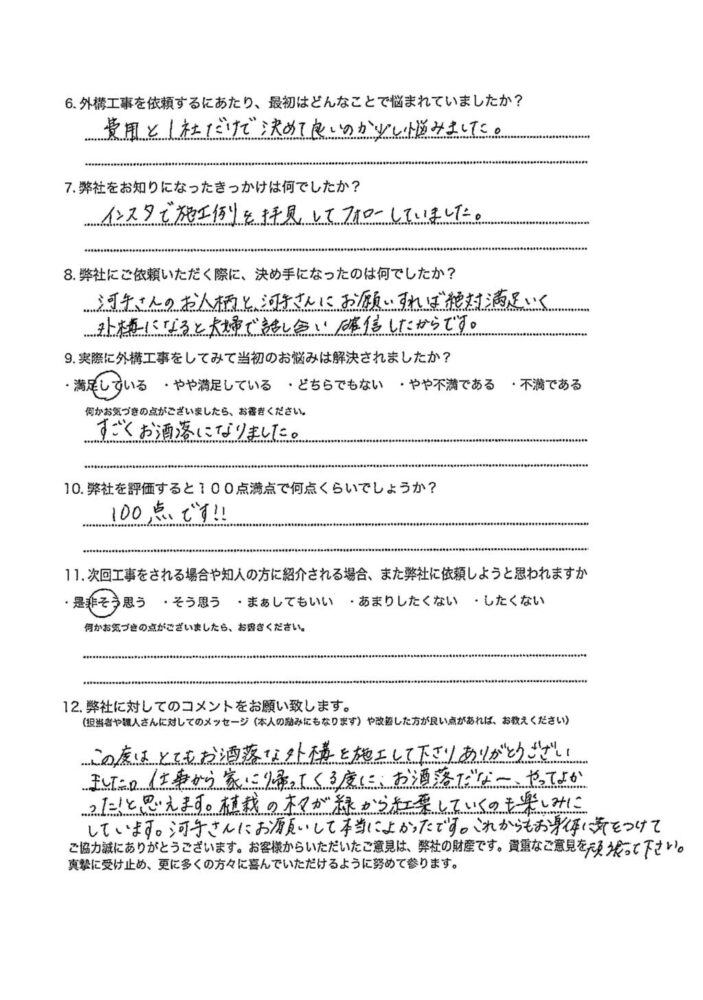 6. 外構工事を依頼するにあたり、最初はどんなことで悩まれていましたか？
費用と1社だけで決めて良いのか少し悩みました。
7. 弊社をお知りになったきっかけは何でしたか？
インスタで施工例を拝見してフォローしていました。
8. 弊社にご依頼いただく際に、決め手になったのは何でしたか？
河手さんのお人柄と、河手さんにお願いすれば絶対満足いく
外構になると夫婦で話し合い確信したからです。
9. 実際に外構工事をしてみて当初のお悩みは解決されましたか？
・満足している ・やや満足している ・どちらでもない ・やや不満である ・不満である
何かお気づきの点がございましたら、お書きください。
すごくお洒落になりました。
10. 弊社を評価すると１００点満点で何点くらいでしょうか？
100点です!!
11. 次回工事をされる場合や知人の方に紹介される場合、また弊社に依頼しようと思われますか
・是非そう思う ・そう思う ・まぁしてもいい ・あまりしたくない ・したくない
何かお気づきの点がございましたら、お書きください。
12. 弊社に対してのコメントをお願い致します。
（担当者や職人さんに対してのメッセージ（本人の励みにもなります）や改善した方が良い点があれば、お教えください）
この度はとてもお洒落な外構を施工して下さりありがとうござい
ました。仕事から家に帰ってくる度に、お洒落だな〜、やってよか
った!と思えます。植栽の木々が緑から紅葉していくのも楽しみに
しています。河手さんにお願いして本当によかったです。これからもお身体に気をつけて
頑張って下さい。
ご協力誠にありがとうございます。お客様からいただいたご意見は、弊社の財産です。貴重なご意見を
真摯に受け止め、更に多くの方々に喜んでいただけるように努めて参ります。